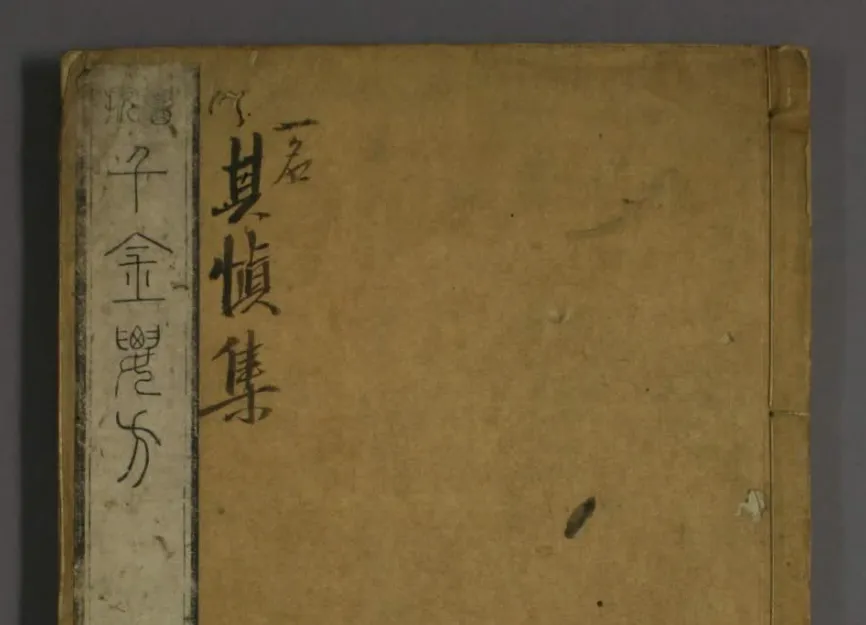 一名
其慎集
千金要方